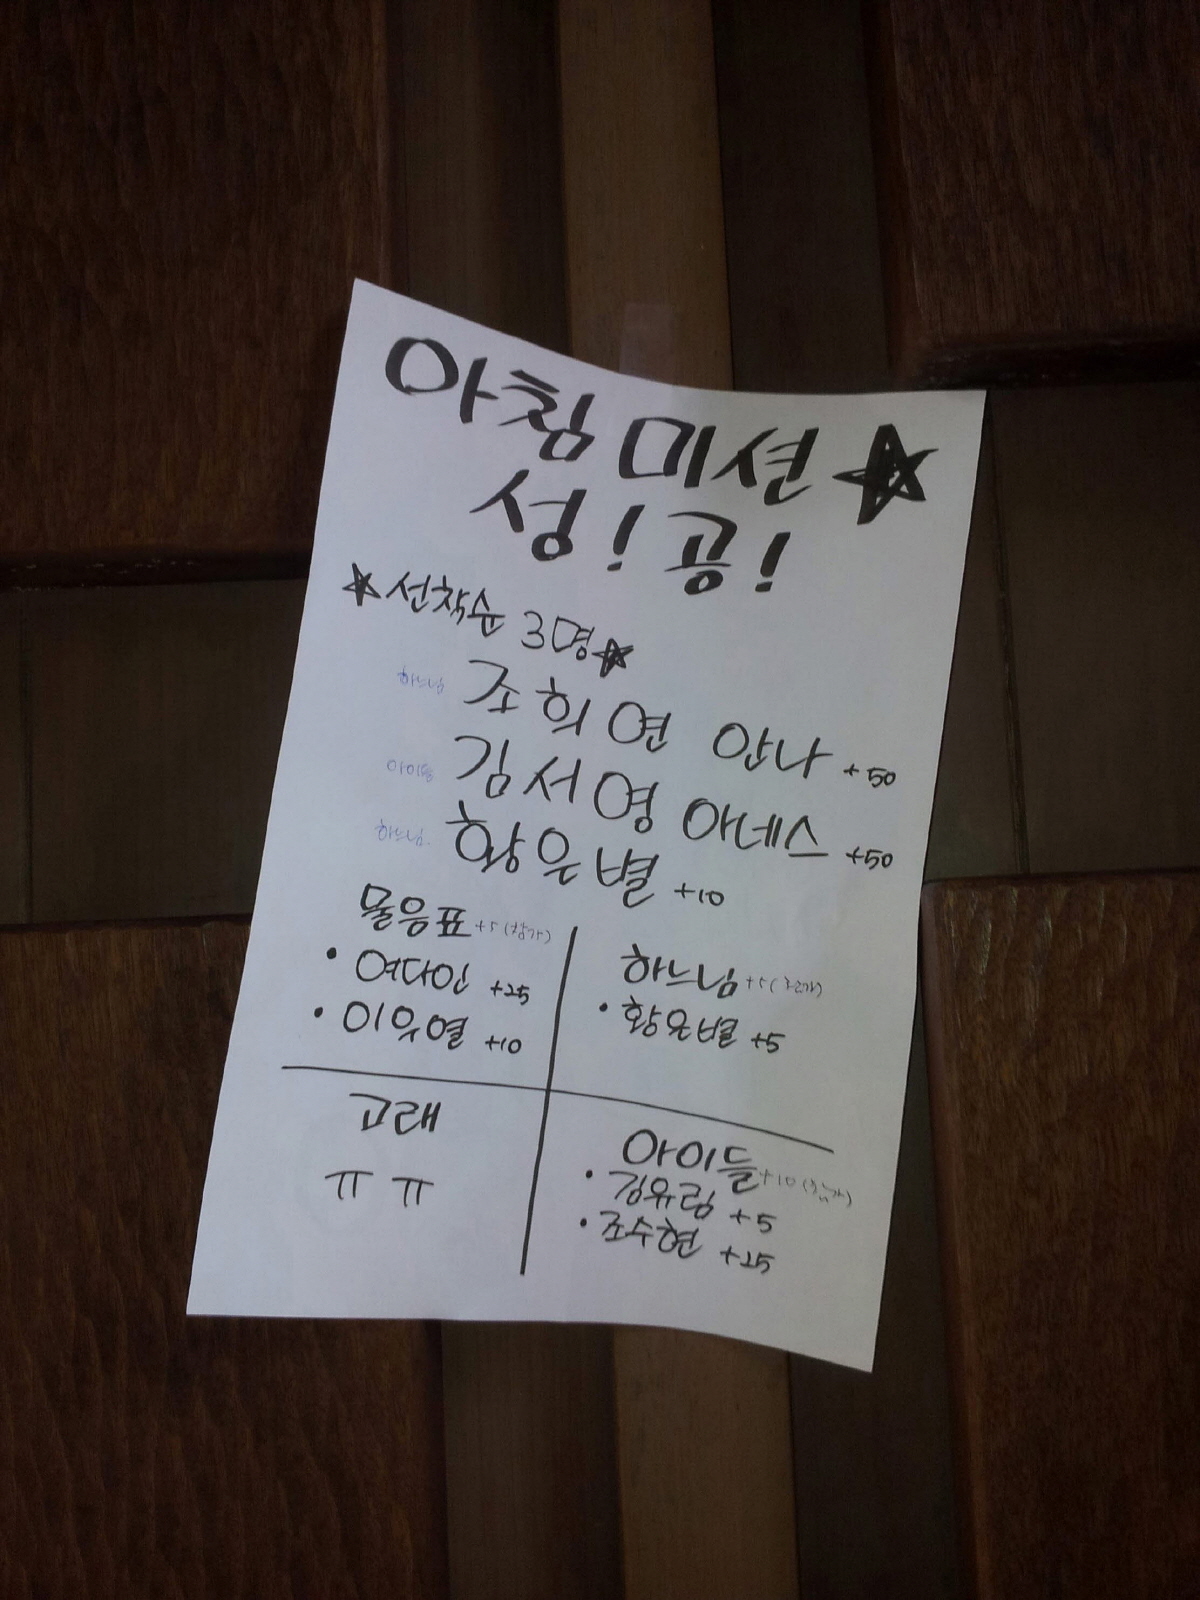 아침 미션 ★
성! 공!
★선착순 3명★
하느님 조희연 안나 +50
아이들 김서영 아네스 +50
하느님 황은별 +10
물음표 +5 (참가)
• 여다인 +25
• 이우열 +10
하느님 +5
• 황은별 +5
고래
ㅠㅠ
아이들 +10
• 김유림 +5
• 조수현 +25